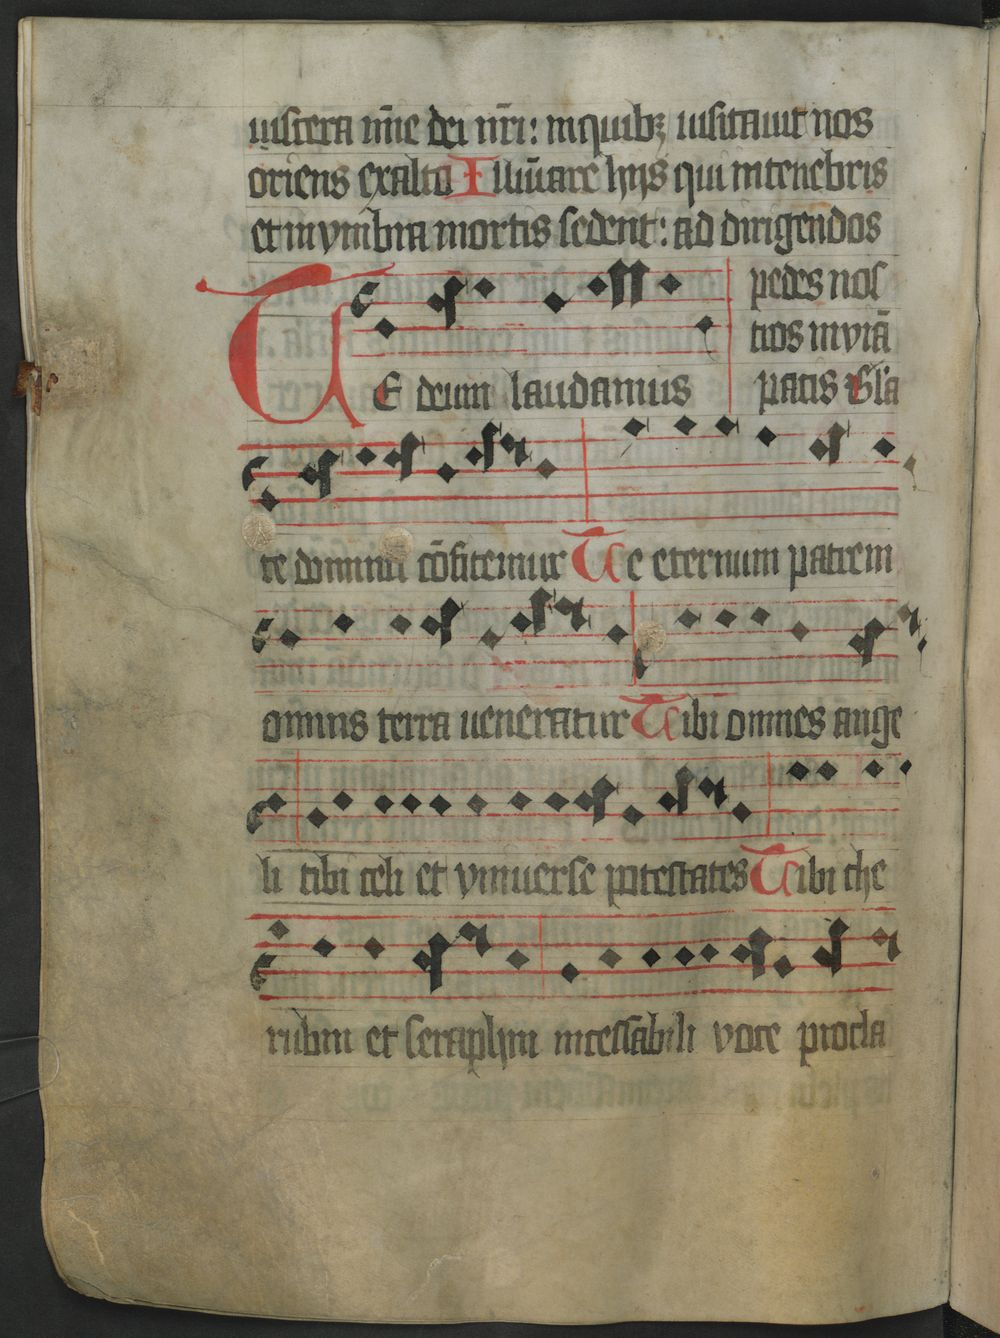 uiscera mīe dei nr̄i: in quibꝫ uisitauit nos
oriens ex alto Illuīare hijs qui in tenebris
et in vmbra mortis sedent: ad dirigendos
pedes nos
tros in viā
pacis Gl̄a
TE deum laudamus
te dominū cōfitemur Te eternum patrem
omnis terra ueneratur Tibi omnes ange
li tibi celi et vniuerse potestates Tibi che
rubin et seraphin incessabili voce procla